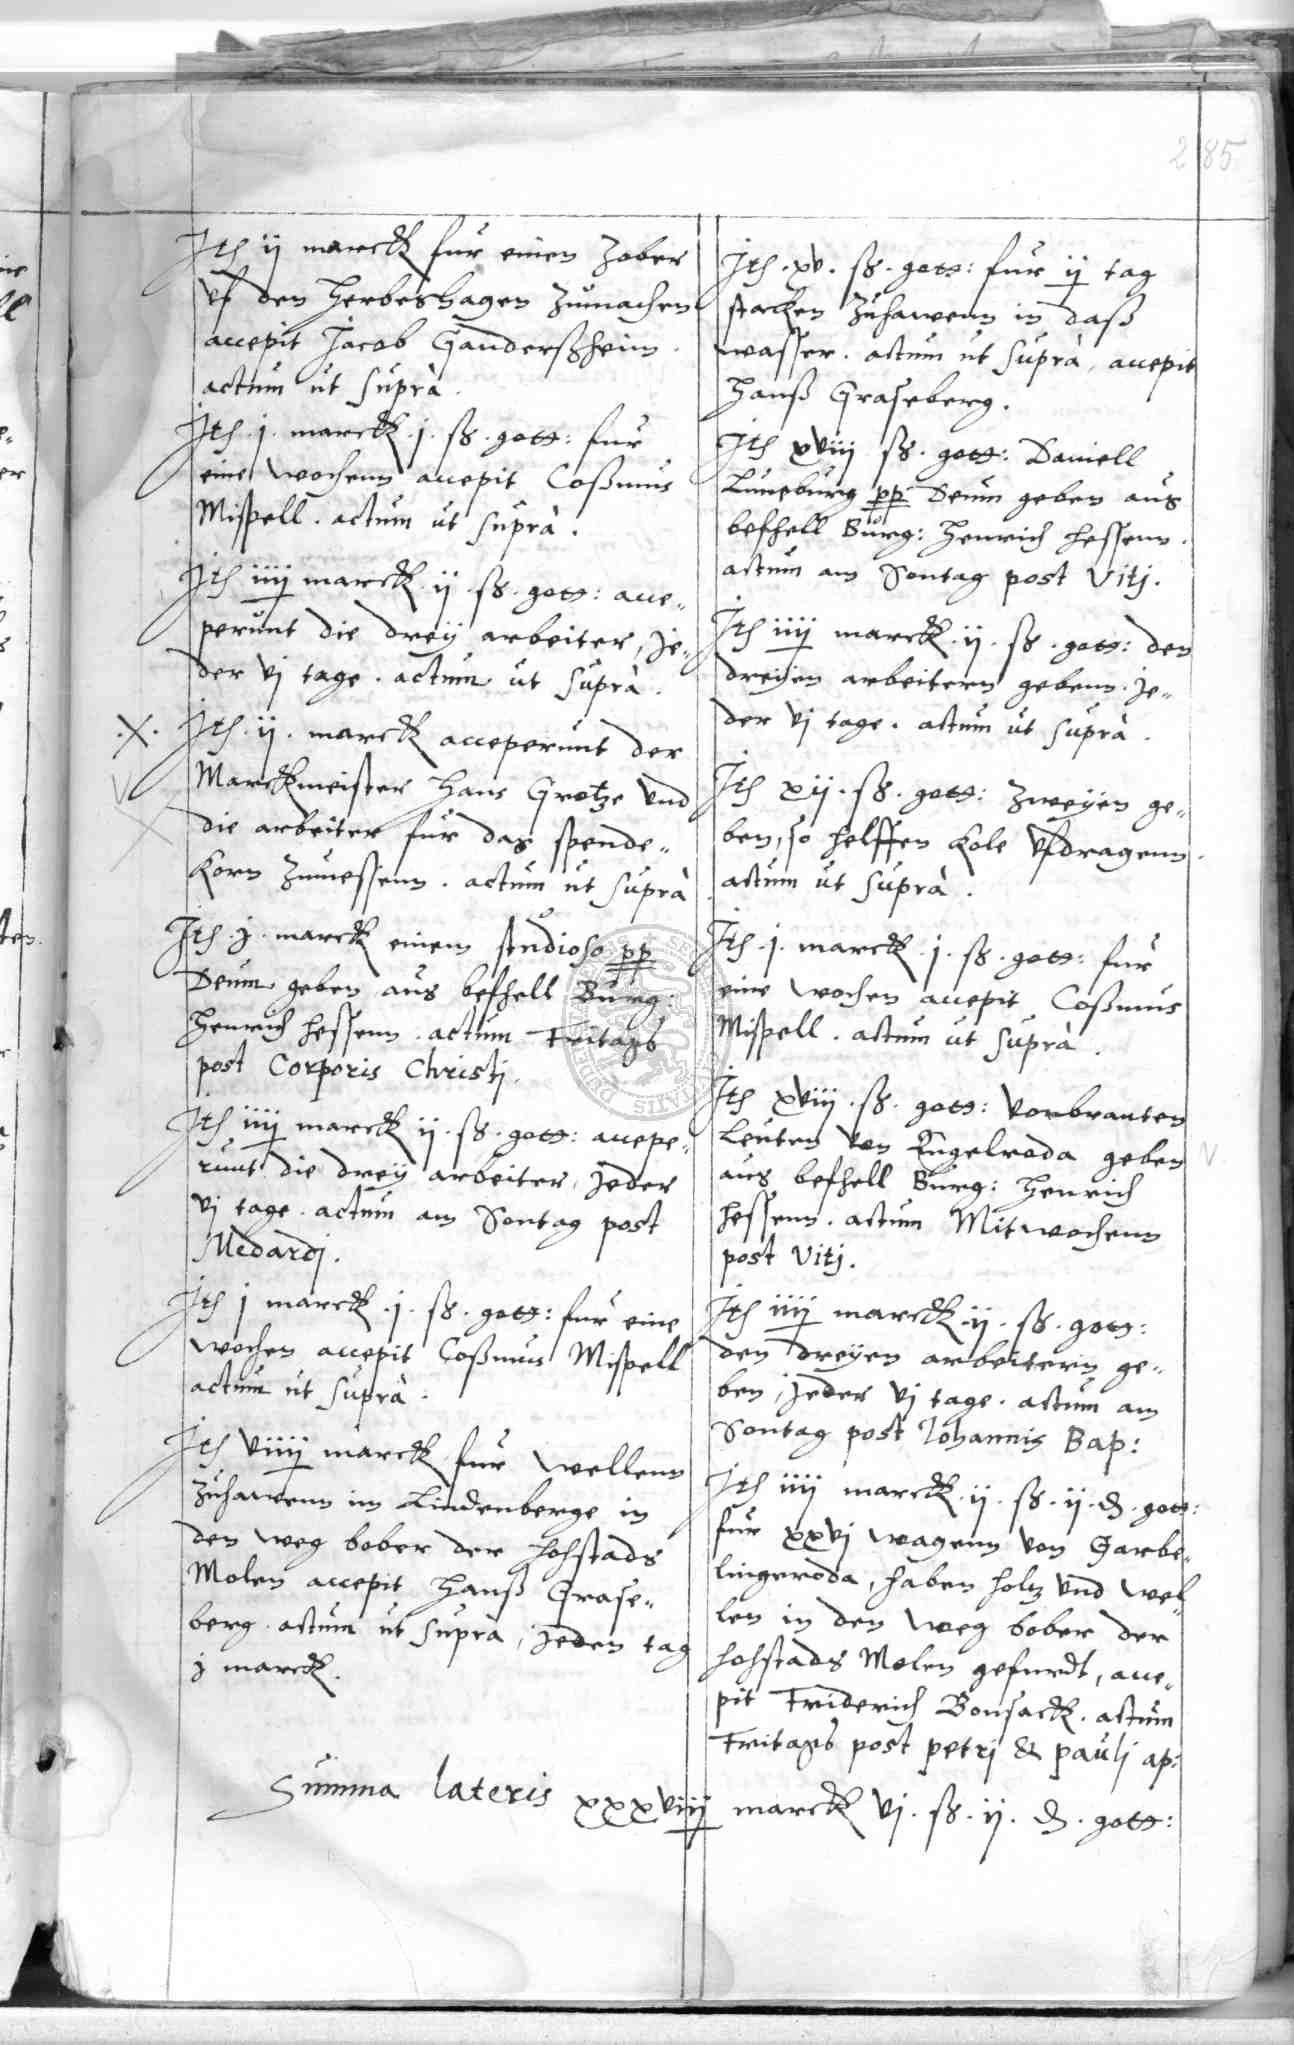 285
Ith ij marck fur einen Zober
uf den Herbeshagen Zumachen
accepit Jacob Ganderßheim.
actum ut suprà.
Ith .j. marck .j. ß. gott: fur
eine wochenn accepit Coßmus
Mispell. actum ut suprà.
Ith iiij marck .ij. ß. gott: acce„
perunt die dreij arbeiter, je„
der vj tage. actum ut suprà.
.X. Ith .ij. marck acceperunt der
Marckmeister Hans Grotze und
die arbeiter fur das spende„
korn Zumessenn. actum ut suprà
Ith .j. marck einem studioso pp
Deum geben aus befhell Burg:
Henrich Hessenn. actum Fritags
post Corporis Christj.
Ith iiij marck ij. ß. gott: accepe„
runt die dreij arbeiter, jeder
vj tage. actum am Sontag post
Medardj.
Ith j marck .j. ß. gott: fur eine
wochen accepit Coßmus Mispell
actum ut suprà.
Ith viiij marck fur wellenn
Zuhawenn im Lindenberge in
den weg bober der hohstads
Molen accepit Hanß Grase„
berg. actum ut suprà, jeden tag
j marck.
Ith .xv. ß. gott: fur ij tag
stacken Zuhawenn in daß
wasser. actum ut suprà, accepit
Hanß Graseberg.
Ith xviij ß. gott: Daniell
Luneburg pp Deum geben aus
befhell Burg: Henrich Hessenn.
actum am Sontag post Vitj.
Ith iiij marck .ij. ß. gott: den
dreijen arbeitern gebenn. je„
der vj tage. actum ut suprà.
Ith xij. ß. gott: Zweyen ge„
ben, so helffen kole ufdragenn.
actum ut suprà.
Ith .j. marck .j. ß. gott: fur
eine wochen accepit Coßmus
Mispell. actum ut suprà.
Ith xviij. ß. gott: vorbranten
Leuten von Engelroda geben
aus befhell Burg: Henrich
Hessenn. actum Mitwochenn
post Vitj.
Ith iiij marck .ij. ß. gott:
den dreijen arbeitern ge„
ben, jeder vj tage. actum am
Sontag post Johannis Bap:
Ith iiij marck .ij. ß. ij. d. gott:
fur xxvj wagenn von Garbe„
lingeroda, haben holtz und wel„
len in den weg bober der
hohstads Molen gefurdt, acce„
pit Friderich Bonsack. actum
Fritags post petrj & paulj ap:
Summa lateris xxxviij marck vj. ß. ij. d. gott: